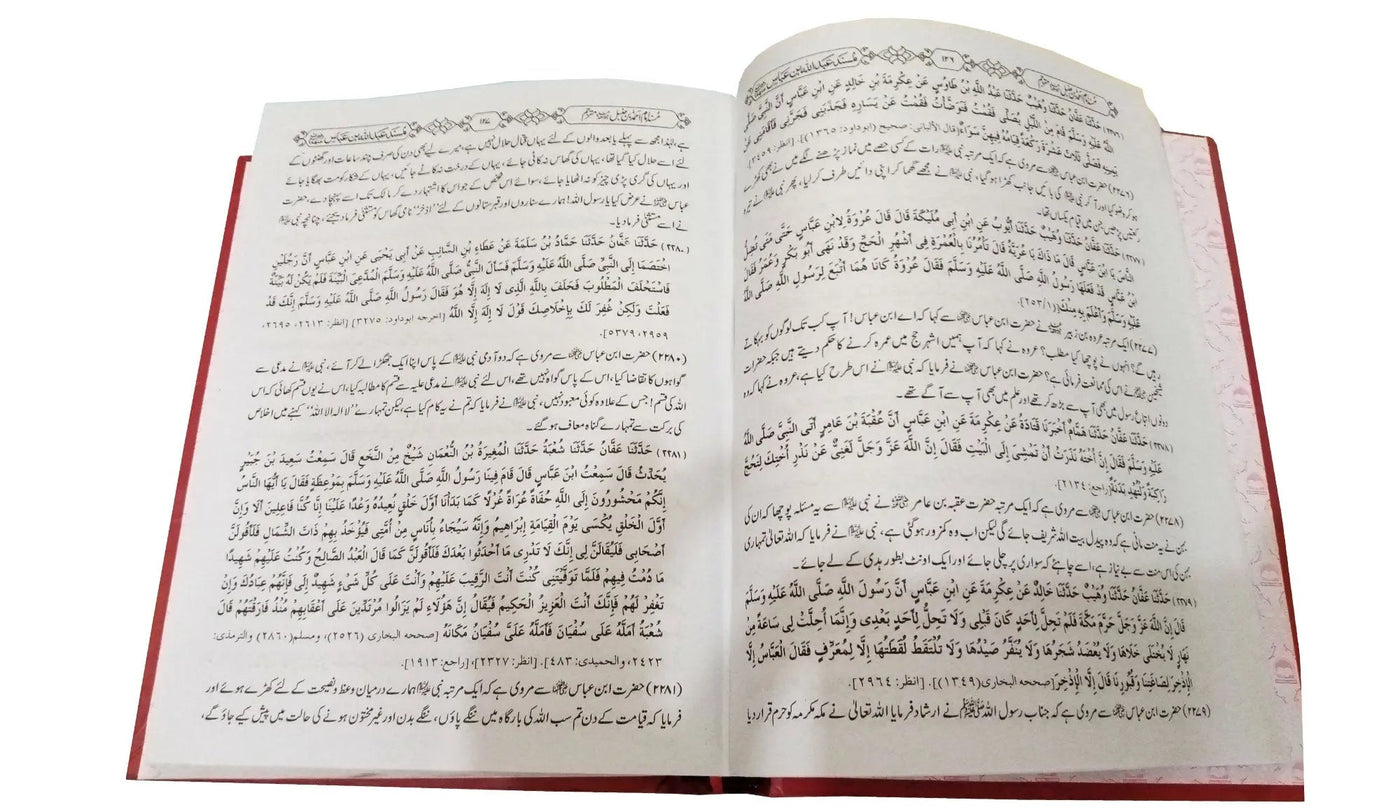 مسند عبد اللہ ابن عباس ۱۳۶ مسند امام احمد بن حنبل مترجم
(۲۲۷۶) حَدَّثَنَا عَفَّانُ حَدَّثَنَا وُهَيْبٌ حَدَّثَنَا عَبْدُ اللَّهِ بْنُ طَاوُسٍ عَنْ عِكْرِمَةَ بْنِ خَالِدٍ عَنِ ابْنِ عَبَّاسٍ أَنَّ النَّبِيَّ صَلَّى
اللَّهُ عَلَيْهِ وَسَلَّمَ قَامَ مِنَ اللَّيْلِ يُصَلِّي فَقُمْتُ فَتَوَضَّأْتُ فَقُمْتُ عَنْ يَسَارِهِ فَجَذَبَنِي فَجَرَّنِي فَأَقَامَنِي عَنْ
يَمِينِهِ فَصَلَّى ثَلَاثَ عَشْرَةَ رَكْعَةً قِيَامُهُ فِيهِنَّ سَوَاءٌ [قال الألبانى: صحيح (ابوداود: ۱۳٦٥)]. [انظر: ٢٤٥٩].
(۲۲۷۶) حضرت ابن عباس ؓ سے مروی ہے کہ ایک مرتبہ نبی ﷺ رات کے کسی حصے میں نماز پڑھنے لگے میں نے بھی کھڑے
ہو کر وضو کیا اور آ کر نبی ﷺ کی بائیں جانب کھڑا ہو گیا، نبی ﷺ نے مجھے گھما کر اپنی دائیں طرف کر لیا، پھر نبی ﷺ نے تیرہ
رکعتیں پڑھیں جن میں قیام یکساں تھا۔
(۲۲۷۷) حَدَّثَنَا عَفَّانُ حَدَّثَنَا وُهَيْبٌ حَدَّثَنَا أَيُّوبُ عَنِ ابْنِ أَبِي مُلَيْكَةَ قَالَ قَالَ عُرْوَةُ لِابْنِ عَبَّاسٍ حَتَّى مَتَى تُضِلُّ
النَّاسَ يَا ابْنَ عَبَّاسٍ قَالَ مَا ذَاكَ يَا عُرَيَّةُ قَالَ تَأْمُرُنَا بِالْعُمْرَةِ فِي أَشْهُرِ الْحَجِّ وَقَدْ نَهَى أَبُو بَكْرٍ وَعُمَرُ فَقَالَ
ابْنُ عَبَّاسٍ قَدْ فَعَلَهَا رَسُولُ اللَّهِ صَلَّى اللَّهُ عَلَيْهِ وَسَلَّمَ فَقَالَ عُرْوَةُ كَانَا هُمَا أَتْبَعَ لِرَسُولِ اللَّهِ صَلَّى اللَّهُ
عَلَيْهِ وَسَلَّمَ وَأَعْلَمَ بِهِ مِنْكَ (۲۵۲/۱)
(۲۲۷۷) ایک مرتبہ عروہ بن زبیر نے حضرت ابن عباس ؓ سے کہا کہ اے ابن عباس! آپ کب تک لوگوں کو بہکاتے
رہیں گے؟ انہوں نے پوچھا کیا مطلب؟ عروہ نے کہا کہ آپ ہمیں اشہر حج میں عمرہ کرنے کا حکم دیتے ہیں جبکہ حضرات
شیخین نے اس کی ممانعت فرمائی ہے؟ حضرت ابن عباس ؓ نے فرمایا کہ نبی ﷺ نے اس طرح کیا ہے، عروہ نے کہا کہ وہ
دونوں اتباع رسول میں بھی آپ سے بڑھ کر تھے اور علم میں بھی آپ سے آگے تھے۔
(۲۲۷۸) حَدَّثَنَا عَفَّانُ حَدَّثَنَا هَمَّامٌ أَخْبَرَنَا قَتَادَةُ عَنْ عِكْرِمَةَ عَنِ ابْنِ عَبَّاسٍ أَنَّ عُقْبَةَ بْنَ عَامِرٍ أَتَى النَّبِيَّ صَلَّى اللَّهُ
عَلَيْهِ وَسَلَّمَ فَقَالَ إِنَّ أُخْتَهُ نَذَرَتْ أَنْ تَمْشِيَ إِلَى الْبَيْتِ فَقَالَ إِنَّ اللَّهَ عَزَّ وَجَلَّ لَغَنِيٌّ عَنْ نَذْرِ أُخْتِكَ لِتَحُجَّ
رَاكِبَةً وَلْتُهْدِ بَدَنَةً [راجع: ٢١٣٤].
(۲۲۷۸) حضرت ابن عباس ؓ سے مروی ہے کہ ایک مرتبہ حضرت عقبہ بن عامر ؓ نے نبی ﷺ سے یہ مسئلہ پوچھا کہ ان کی
بہن نے یہ منت مانی ہے کہ وہ پیدل بیت اللہ شریف جائے گی لیکن اب وہ کمزور ہو گئی ہے، نبی ﷺ نے فرمایا کہ اللہ تعالیٰ تمہاری
بہن کی اس منت سے بے نیاز ہے، اسے چاہئے کہ سواری پر چلی جائے اور ایک اونٹ بطور ہدی کے لے جائے۔
(۲۲۷۹) حَدَّثَنَا عَفَّانُ حَدَّثَنَا وُهَيْبٌ حَدَّثَنَا خَالِدٌ عَنْ عِكْرِمَةَ عَنِ ابْنِ عَبَّاسٍ أَنَّ رَسُولَ اللَّهِ صَلَّى اللَّهُ عَلَيْهِ وَسَلَّمَ
قَالَ إِنَّ اللَّهَ عَزَّ وَجَلَّ حَرَّمَ مَكَّةَ فَلَمْ تَحِلَّ لِأَحَدٍ كَانَ قَبْلِي وَلَا تَحِلُّ لِأَحَدٍ بَعْدِي وَإِنَّمَا أُحِلَّتْ لِي سَاعَةً مِنْ
نَهَارٍ لَا يُخْتَلَى خَلَاهَا وَلَا يُعْضَدُ شَجَرُهَا وَلَا يُنَفَّرُ صَيْدُهَا وَلَا تُلْتَقَطُ لُقَطَتُهَا إِلَّا لِمُعَرِّفٍ فَقَالَ الْعَبَّاسُ إِلَّا
الْإِذْخِرَ لِصَاغَتِنَا وَقُبُورِنَا قَالَ إِلَّا الْإِذْخِرَ [صححه البخارى (١٣٤٩)]. [انظر: ٢٩٦٤].
(۲۲۷۹) حضرت ابن عباس ؓ سے مروی ہے کہ جناب رسول اللہ ﷺ نے ارشاد فرمایا اللہ تعالیٰ نے مکہ مکرمہ کو حرم قرار دیا
مسند عبد اللہ ابن عباس ۱۳۷ مسند امام احمد بن حنبل مترجم
ہے، لہٰذا مجھ سے پہلے یا بعد والوں کے لئے یہاں قتال حلال نہیں ہے، میرے لیے بھی دن کی صرف چند ساعات اور گھنٹوں کے
لئے اسے حلال کیا گیا تھا، یہاں کی گھاس نہ کاٹی جائے، یہاں کے درخت نہ کاٹے جائیں، یہاں کے شکار کو مت بھگایا جائے
اور یہاں کی گری پڑی چیز کو نہ اٹھایا جائے، سوائے اس شخص کے جو اس کا اشتہار دے کر مالک تک اسے پہنچا دے، حضرت
عباس ؓ نے عرض کیا یا رسول اللہ! ہمارے سناروں اور قبرستانوں کے لئے "اذخر" نامی گھاس کو مستثنیٰ فرما دیجئے، چنانچہ نبی ﷺ
نے اسے مستثنیٰ فرما دیا۔
(۲۲۸۰) حَدَّثَنَا عَفَّانُ حَدَّثَنَا حَمَّادُ بْنُ سَلَمَةَ عَنْ عَطَاءِ بْنِ السَّائِبِ عَنْ أَبِي يَحْيَى عَنِ ابْنِ عَبَّاسٍ أَنَّ رَجُلَيْنِ
اخْتَصَمَا إِلَى النَّبِيِّ صَلَّى اللَّهُ عَلَيْهِ وَسَلَّمَ فَسَأَلَ النَّبِيُّ صَلَّى اللَّهُ عَلَيْهِ وَسَلَّمَ الْمُدَّعِيَ الْبَيِّنَةَ فَلَمْ يَكُنْ لَهُ بَيِّنَةٌ
فَاسْتَحْلَفَ الْمَطْلُوبَ فَحَلَفَ بِاللَّهِ الَّذِي لَا إِلَهَ إِلَّا هُوَ فَقَالَ رَسُولُ اللَّهِ صَلَّى اللَّهُ عَلَيْهِ وَسَلَّمَ إِنَّكَ قَدْ
فَعَلْتَ وَلَكِنْ غُفِرَ لَكَ بِإِخْلَاصِكَ قَوْلَ لَا إِلَهَ إِلَّا اللَّهُ [اخرجه ابوداود: ٣٢٧٥] [انظر: ٢٦١٣، ٢٦٩٥،
٢٩٥٩، ٥٣٧٩].
(۲۲۸۰) حضرت ابن عباس ؓ سے مروی ہے کہ دو آدمی نبی ﷺ کے پاس اپنا ایک جھگڑا لے کر آئے، نبی ﷺ نے مدعی سے
گواہوں کا تقاضا کیا، اس کے پاس گواہ نہیں تھے، اس لئے نبی ﷺ نے مدعی علیہ سے قسم کا مطالبہ کیا، اس نے یوں قسم کھائی کہ اس
اللہ کی قسم! جس کے علاوہ کوئی معبود نہیں، نبی ﷺ نے فرمایا کہ تم نے یہ کام کیا ہے، لیکن تمہارے "لا الہ الا اللہ" کہنے میں اخلاص
کی برکت سے تمہارے گناہ معاف ہو گئے۔
(۲۲۸۱) حَدَّثَنَا عَفَّانُ حَدَّثَنَا شُعْبَةُ حَدَّثَنَا الْمُغِيرَةُ بْنُ النُّعْمَانِ شَيْخٌ مِنَ النَّخَعِ قَالَ سَمِعْتُ سَعِيدَ بْنَ جُبَيْرٍ
يُحَدِّثُ قَالَ سَمِعْتُ ابْنَ عَبَّاسٍ قَالَ قَامَ فِينَا رَسُولُ اللَّهِ صَلَّى اللَّهُ عَلَيْهِ وَسَلَّمَ بِمَوْعِظَةٍ فَقَالَ يَا أَيُّهَا النَّاسُ
إِنَّكُمْ مَحْشُورُونَ إِلَى اللَّهِ حُفَاةً عُرَاةً غُرْلًا كَمَا بَدَأْنَا أَوَّلَ خَلْقٍ نُعِيدُهُ وَعْدًا عَلَيْنَا إِنَّا كُنَّا فَاعِلِينَ أَلَا وَإِنَّ
أَوَّلَ الْخَلْقِ يُكْسَى يَوْمَ الْقِيَامَةِ إِبْرَاهِيمُ وَإِنَّهُ سَيُجَاءُ بِأُنَاسٍ مِنْ أُمَّتِي فَيُؤْخَذُ بِهِمْ ذَاتَ الشِّمَالِ فَلَأَقُولَنَّ
أَصْحَابِي فَلَيُقَالَنَّ لِي إِنَّكَ لَا تَدْرِي مَا أَحْدَثُوا بَعْدَكَ فَلَأَقُولَنَّ كَمَا قَالَ الْعَبْدُ الصَّالِحُ وَكُنْتُ عَلَيْهِمْ شَهِيدًا
مَا دُمْتُ فِيهِمْ فَلَمَّا تَوَفَّيْتَنِي كُنْتَ أَنْتَ الرَّقِيبَ عَلَيْهِمْ وَأَنْتَ عَلَى كُلِّ شَيْءٍ شَهِيدٌ إِلَى فَإِنَّهُمْ عِبَادُكَ وَإِنْ
تَغْفِرْ لَهُمْ فَإِنَّكَ أَنْتَ الْعَزِيزُ الْحَكِيمُ فَيُقَالُ إِنَّ هَؤُلَاءِ لَمْ يَزَالُوا مُرْتَدِّينَ عَلَى أَعْقَابِهِمْ مُنْذُ فَارَقْتَهُمْ قَالَ
شُعْبَةُ أَمَلَّهُ عَلَى سُفْيَانَ فَأَمَلَّهُ عَلَيَّ سُفْيَانُ مَكَانَهُ [صححه البخارى (٢٥٢٦)، ومسلم (٢٨٦٠) والترمذى:
٢٤٢٣، والحميدى: ٤٨٣]. [انظر: ٢٣٢٧]. [راجع: ١٩١٣].
(۲۲۸۱) حضرت ابن عباس ؓ سے مروی ہے کہ ایک مرتبہ نبی ﷺ ہمارے درمیان وعظ و نصیحت کے لئے کھڑے ہوئے اور
فرمایا کہ قیامت کے دن تم سب اللہ کی بارگاہ میں ننگے پاؤں، ننگے بدن اور غیر مختون ہونے کی حالت میں پیش کیے جاؤ گے،